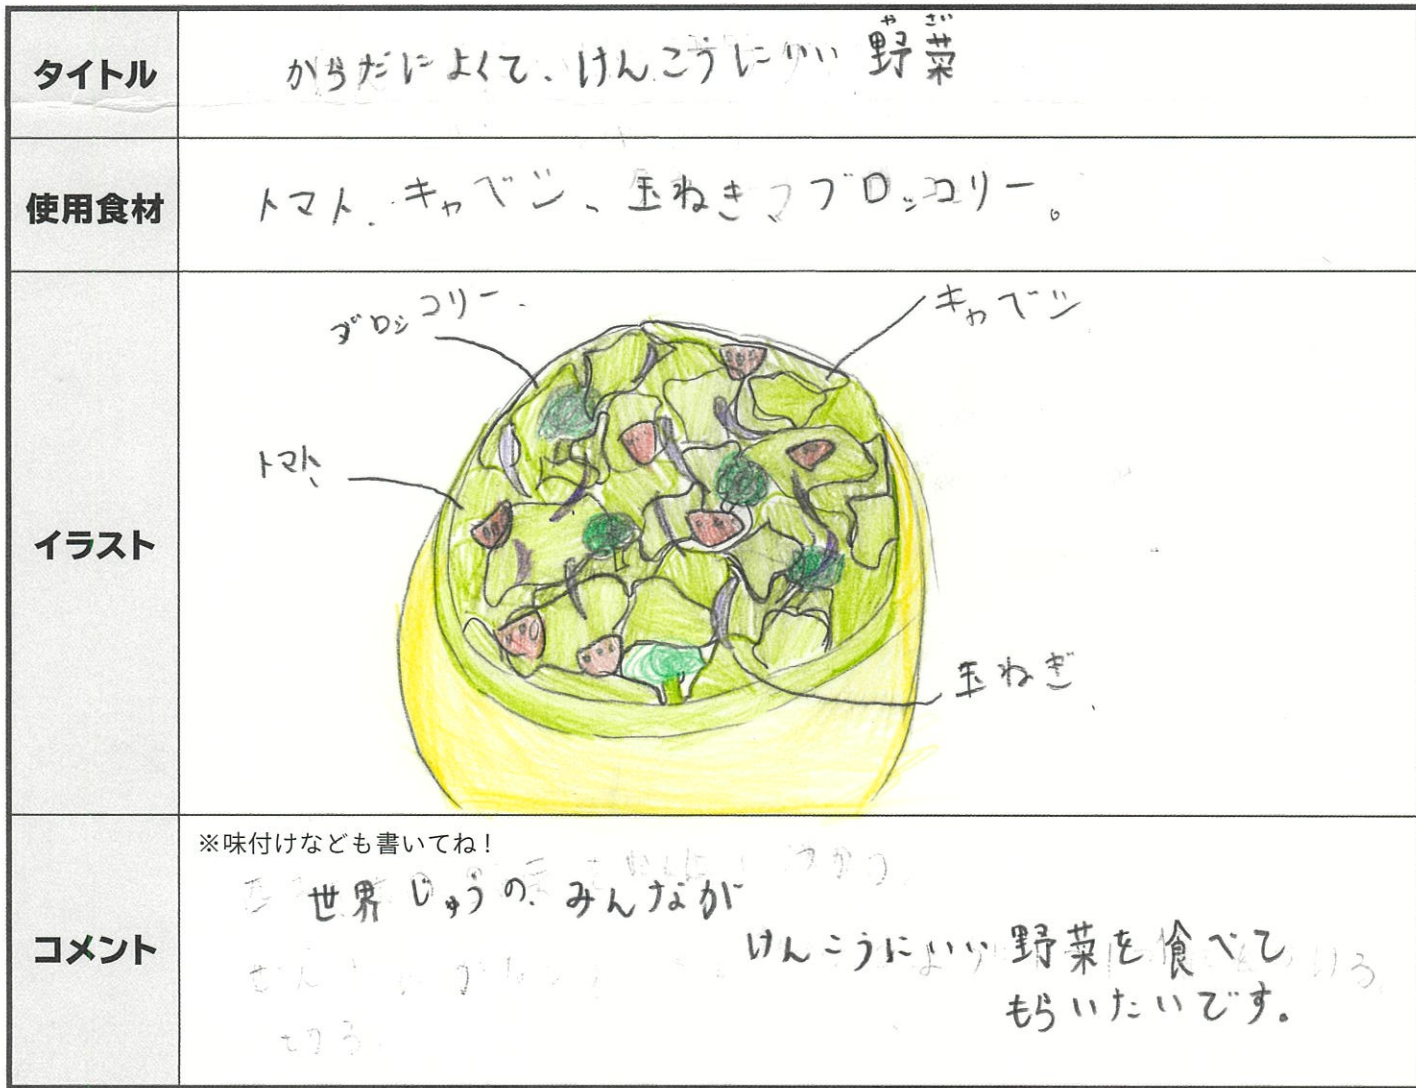 タイトル
からだによくて、けんこうにいい 野菜
やさい
使用食材
トマト、キャベツ、玉ねぎ、ブロッコリー。
イラスト
ブロッコリー
キャベツ
トマト
玉ねぎ
コメント
※味付けなども書いてね！
世界じゅうの、みんなが
けんこうにいい野菜を食べて
もらいたいです。